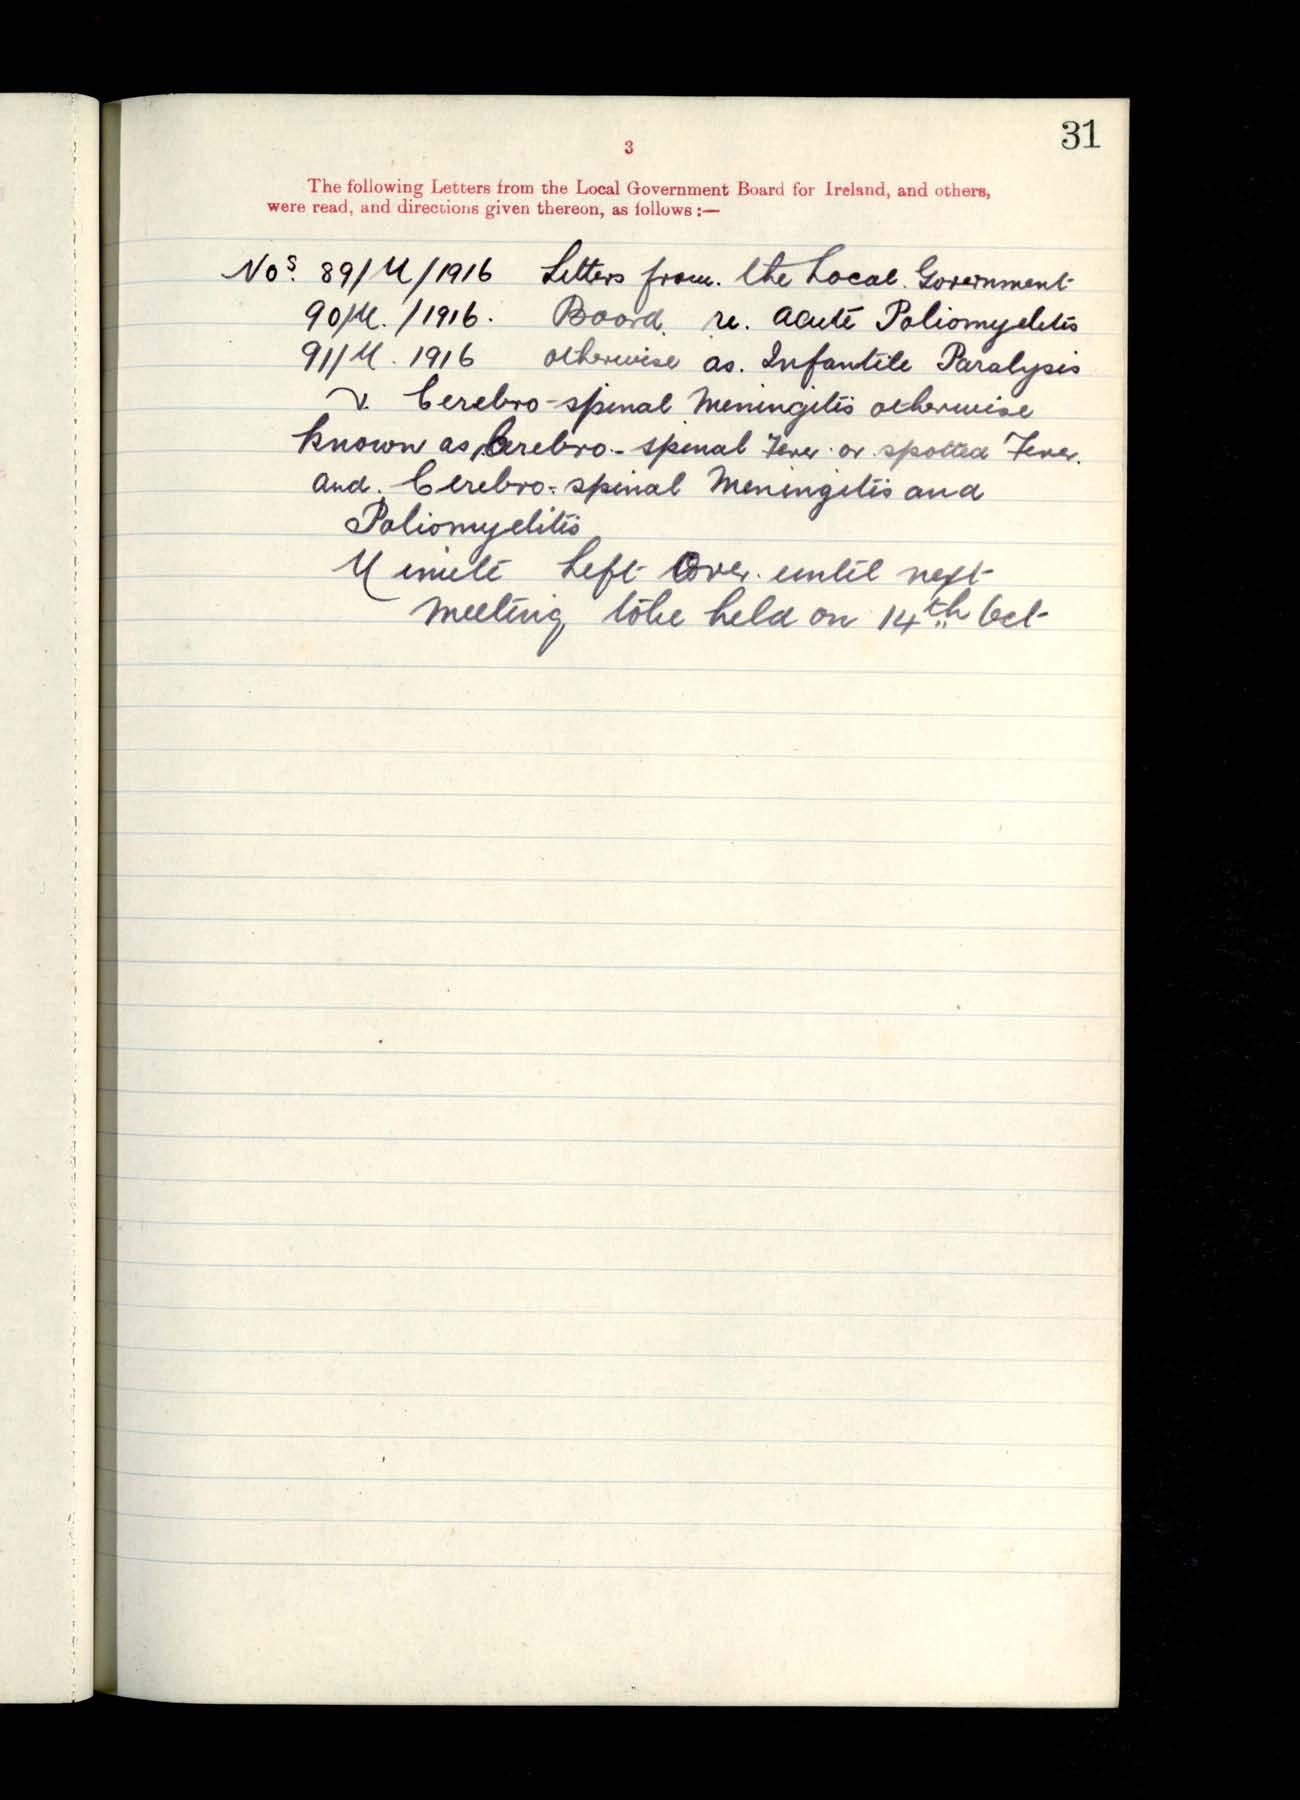 31
3
The following Letters from the Local Government Board for Ireland, and others,
were read, and directions given thereon, as follows :—
Nos. 89/M/1916 Letters from. the Local. Government
90/M. /1916. Board. re. acute Poliomyelitis
91/M. 1916 otherwise as. Infantile Paralysis
v. Cerebro-spinal Meningitis otherwise
known as Cerebro-spinal Fever or spotted Fever.
and. Cerebro-spinal Meningitis and
Poliomyelitis
Minute Left Over. until next
meeting to be held on 14th Oct